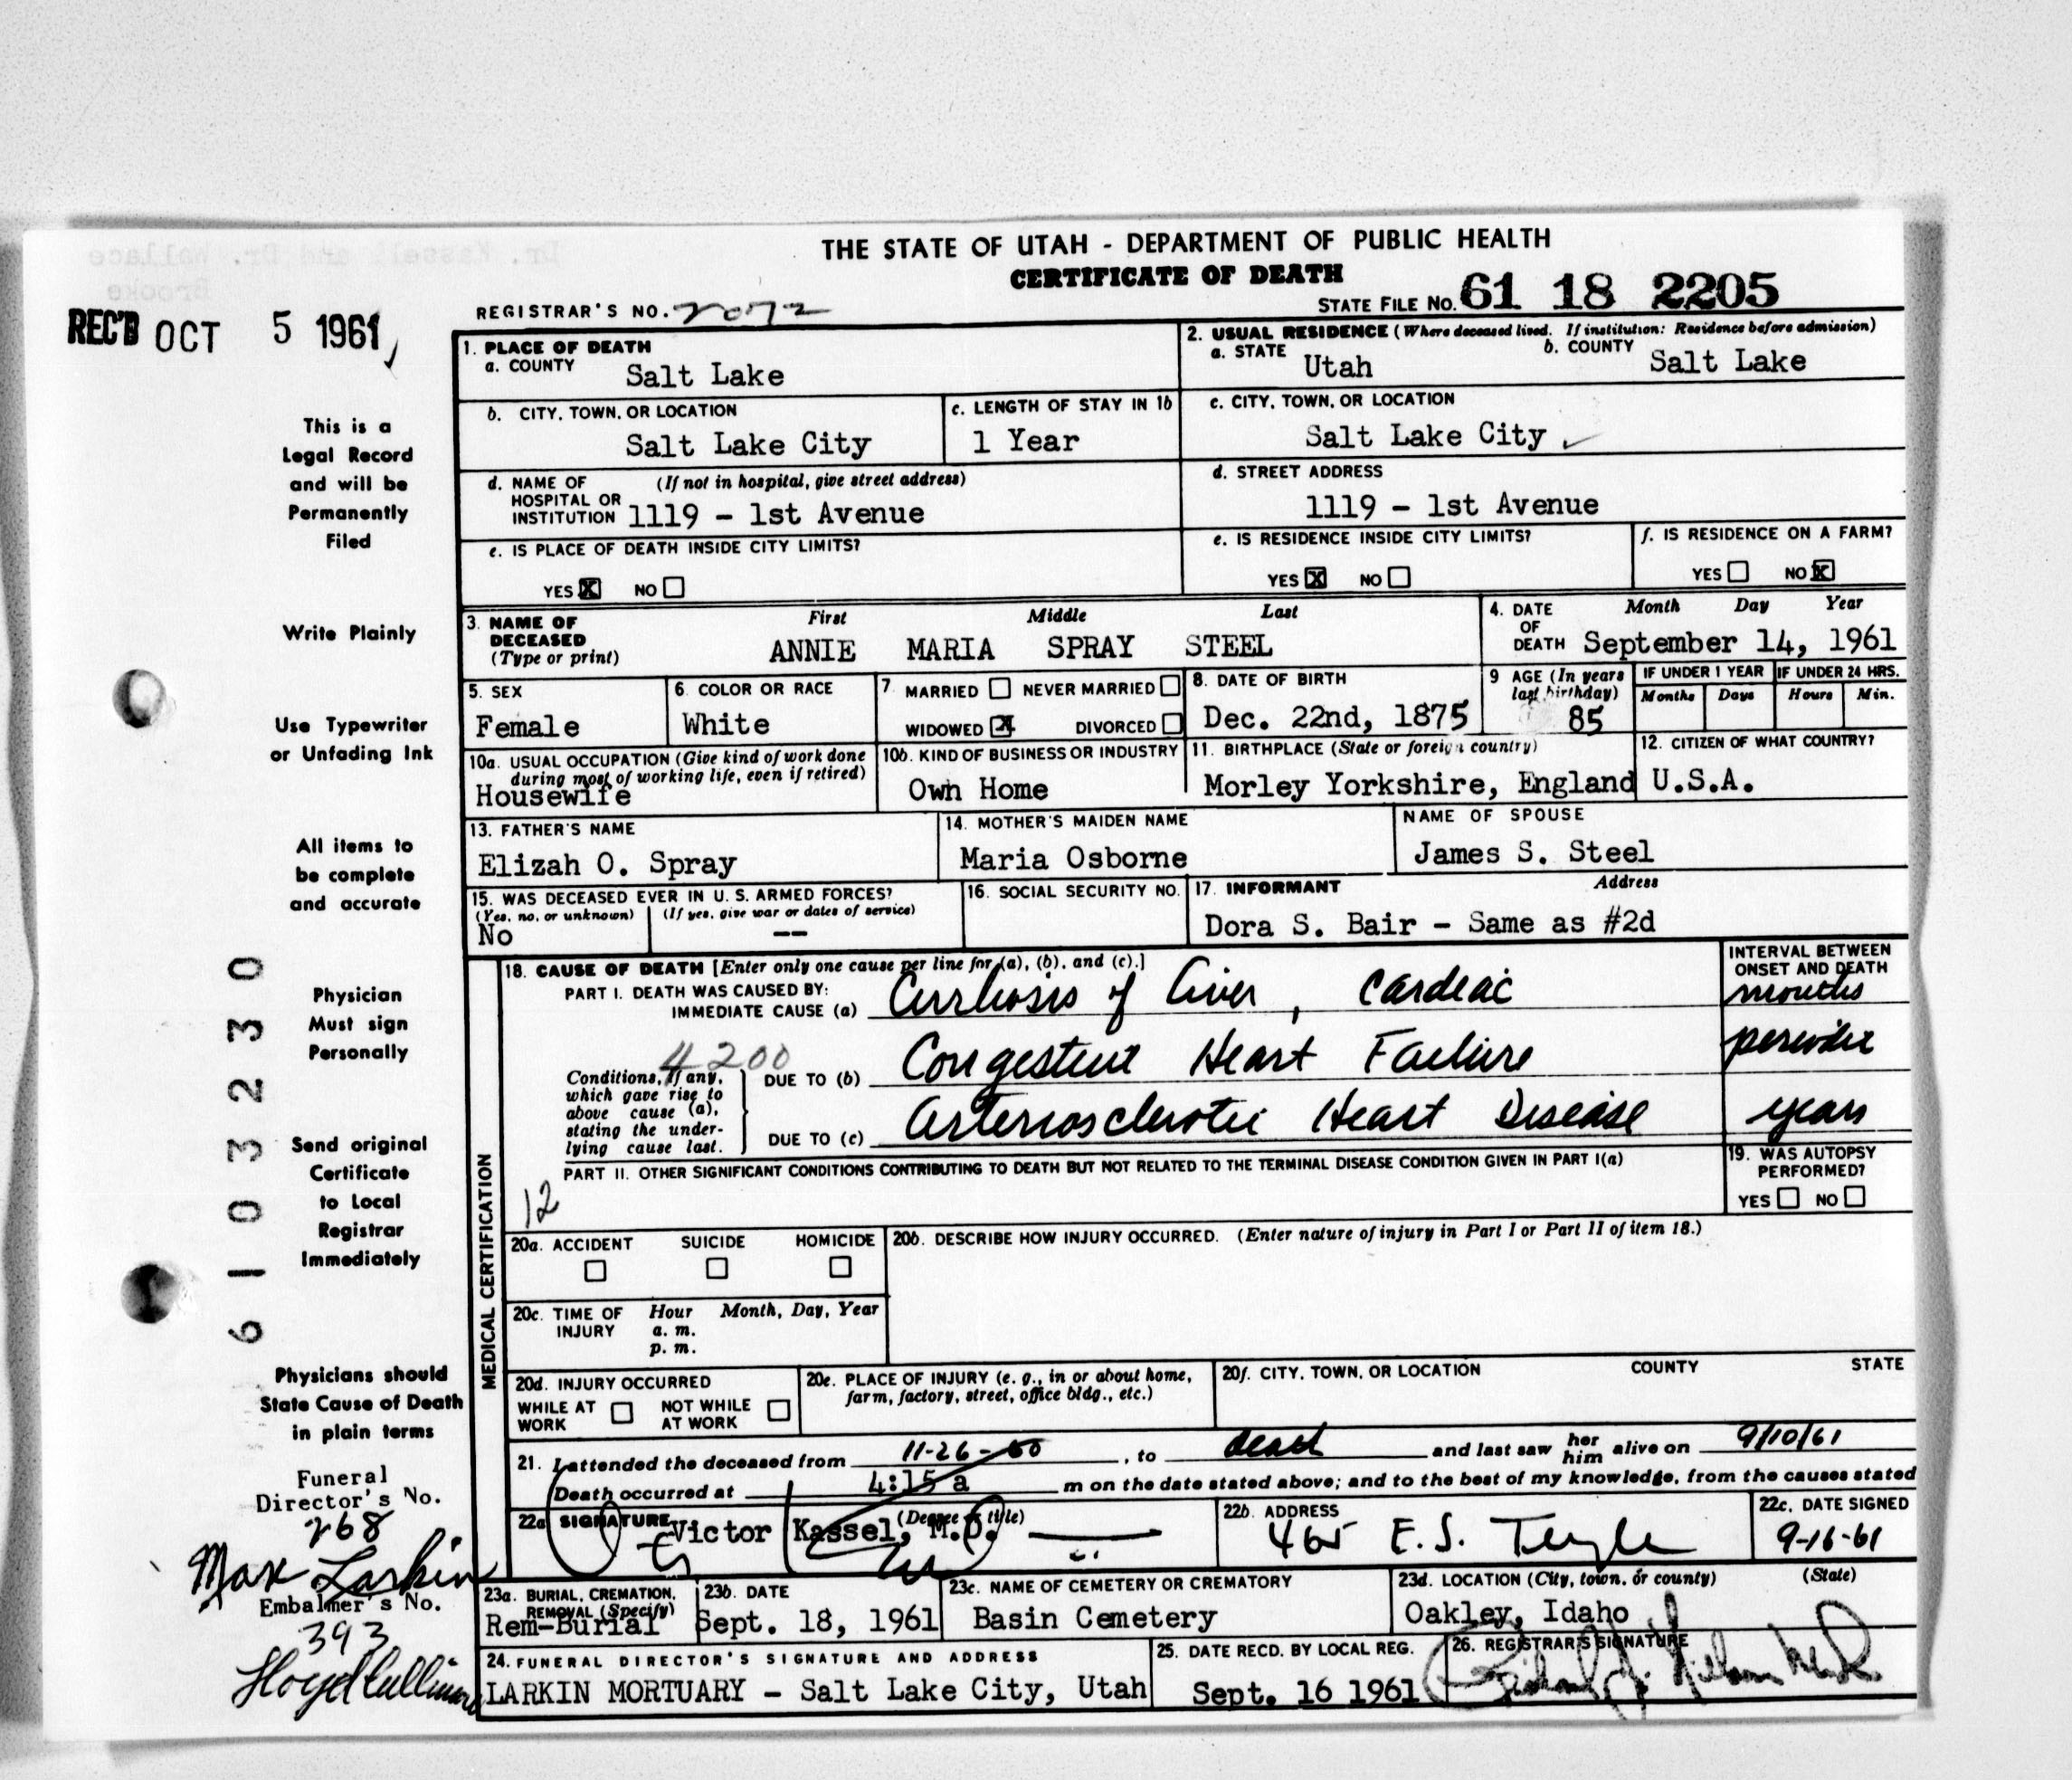 THE STATE OF UTAH - DEPARTMENT OF PUBLIC HEALTH
CERTIFICATE OF DEATH
REGISTRAR'S NO. 2072
STATE FILE NO. 61 18 2205
REC'D OCT 5 1961
1. PLACE OF DEATH
a. COUNTY Salt Lake
2. USUAL RESIDENCE (Where deceased lived. If institution: Residence before admission)
a. STATE Utah b. COUNTY Salt Lake
b. CITY, TOWN, OR LOCATION Salt Lake City
c. LENGTH OF STAY IN 1b 1 Year
c. CITY, TOWN, OR LOCATION
Salt Lake City
d. NAME OF HOSPITAL OR INSTITUTION (If not in hospital, give street address)
1119 - 1st Avenue
d. STREET ADDRESS
1119 - 1st Avenue
e. IS PLACE OF DEATH INSIDE CITY LIMITS?
YES X NO
e. IS RESIDENCE INSIDE CITY LIMITS?
YES X NO
f. IS RESIDENCE ON A FARM?
YES NO X
3. NAME OF DECEASED (Type or print)
First Middle Last
ANNIE MARIA SPRAY STEEL
4. DATE OF DEATH Month Day Year
September 14, 1961
5. SEX
Female
6. COLOR OR RACE
White
7. MARRIED NEVER MARRIED
WIDOWED X DIVORCED
8. DATE OF BIRTH
Dec. 22nd, 1875
9 AGE (In years last birthday)
85
IF UNDER 1 YEAR
Months Days
IF UNDER 24 HRS.
Hours Min.
10a. USUAL OCCUPATION (Give kind of work done during most of working life, even if retired)
Housewife
10b. KIND OF BUSINESS OR INDUSTRY
Own Home
11. BIRTHPLACE (State or foreign country)
Morley Yorkshire, England
12. CITIZEN OF WHAT COUNTRY?
U.S.A.
13. FATHER'S NAME
Elizah O. Spray
14. MOTHER'S MAIDEN NAME
Maria Osborne
NAME OF SPOUSE
James S. Steel
15. WAS DECEASED EVER IN U. S. ARMED FORCES?
(Yes, no, or unknown) (If yes, give war or dates of service)
No --
16. SOCIAL SECURITY NO.
17. INFORMANT Address
Dora S. Bair - Same as #2d
MEDICAL CERTIFICATION
18. CAUSE OF DEATH [Enter only one cause per line for (a), (b), and (c).]
INTERVAL BETWEEN ONSET AND DEATH
PART I. DEATH WAS CAUSED BY:
IMMEDIATE CAUSE (a) Cirrhosis of Liver, Cardiac months
4200
Conditions, if any, which gave rise to above cause (a), stating the underlying cause last.
DUE TO (b) Congestive Heart Failure
DUE TO (c) Arteriosclerotic Heart Disease years
PART II. OTHER SIGNIFICANT CONDITIONS CONTRIBUTING TO DEATH BUT NOT RELATED TO THE TERMINAL DISEASE CONDITION GIVEN IN PART I(a)
12
19. WAS AUTOPSY PERFORMED?
YES NO
20a. ACCIDENT SUICIDE HOMICIDE
20b. DESCRIBE HOW INJURY OCCURRED. (Enter nature of injury in Part I or Part II of item 18.)
20c. TIME OF INJURY Hour Month, Day, Year
a. m.
p. m.
20d. INJURY OCCURRED
WHILE AT WORK NOT WHILE AT WORK
20e. PLACE OF INJURY (e. g., in or about home, farm, factory, street, office bldg., etc.)
20f. CITY, TOWN, OR LOCATION COUNTY STATE
21. I attended the deceased from 11-26-60, to death and last saw her him alive on 9/10/61
Death occurred at 4:15 a m on the date stated above; and to the best of my knowledge, from the causes stated
22a SIGNATURE (Degree or title)
Victor Kassel, M.D.
22b. ADDRESS
465 E. S. Temple
22c. DATE SIGNED
9-16-61
23a. BURIAL, CREMATION, REMOVAL (Specify)
Rem-Burial
23b. DATE
Sept. 18, 1961
23c. NAME OF CEMETERY OR CREMATORY
Basin Cemetery
23d. LOCATION (City, town, or county) (State)
Oakley, Idaho
24. FUNERAL DIRECTOR'S SIGNATURE AND ADDRESS
LARKIN MORTUARY - Salt Lake City, Utah
25. DATE RECD. BY LOCAL REG.
Sept. 16 1961
26. REGISTRAR'S SIGNATURE
This is a
Legal Record
and will be
Permanently
Filed
Write Plainly
Use Typewriter
or Unfading Ink
All items to
be complete
and accurate
Physician
Must sign
Personally
Send original
Certificate
to Local
Registrar
Immediately
Physicians should
State Cause of Death
in plain terms
6103230
Funeral
Director's No.
268
Max Larkin
Embalmer's No.
393
Lloyd Cullimore